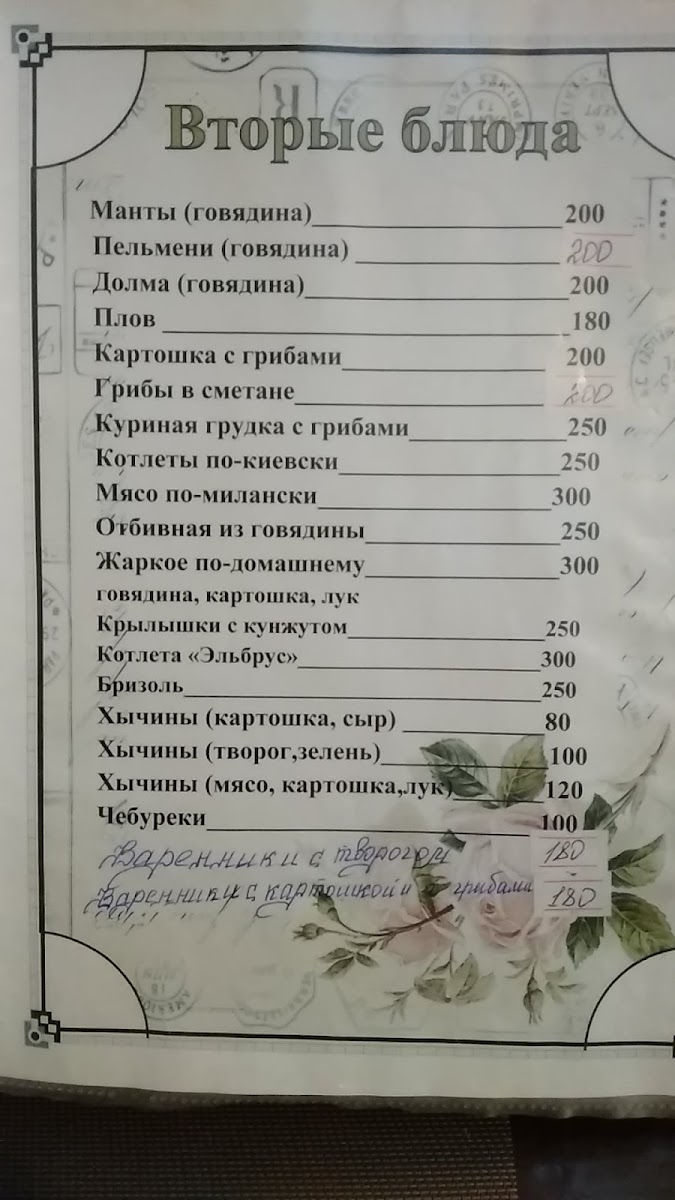 Вторые блюда
Манты (говядина)____200
Пельмени (говядина) ____200
Долма (говядина)____200
Плов ____180
Картошка с грибами____200
Грибы в сметане____200
Куриная грудка с грибами____250
Котлеты по-киевски____250
Мясо по-милански____300
Отбивная из говядины____250
Жаркое по-домашнему____300
говядина, картошка, лук
Крылышки с кунжутом____250
Котлета «Эльбрус»____300
Бризоль____250
Хычины (картошка, сыр) ____80
Хычины (творог,зелень)____100
Хычины (мясо, картошка,лук)____120
Чебуреки____100
Вареники с творогом 180
Вареники с картошкой и грибами 180